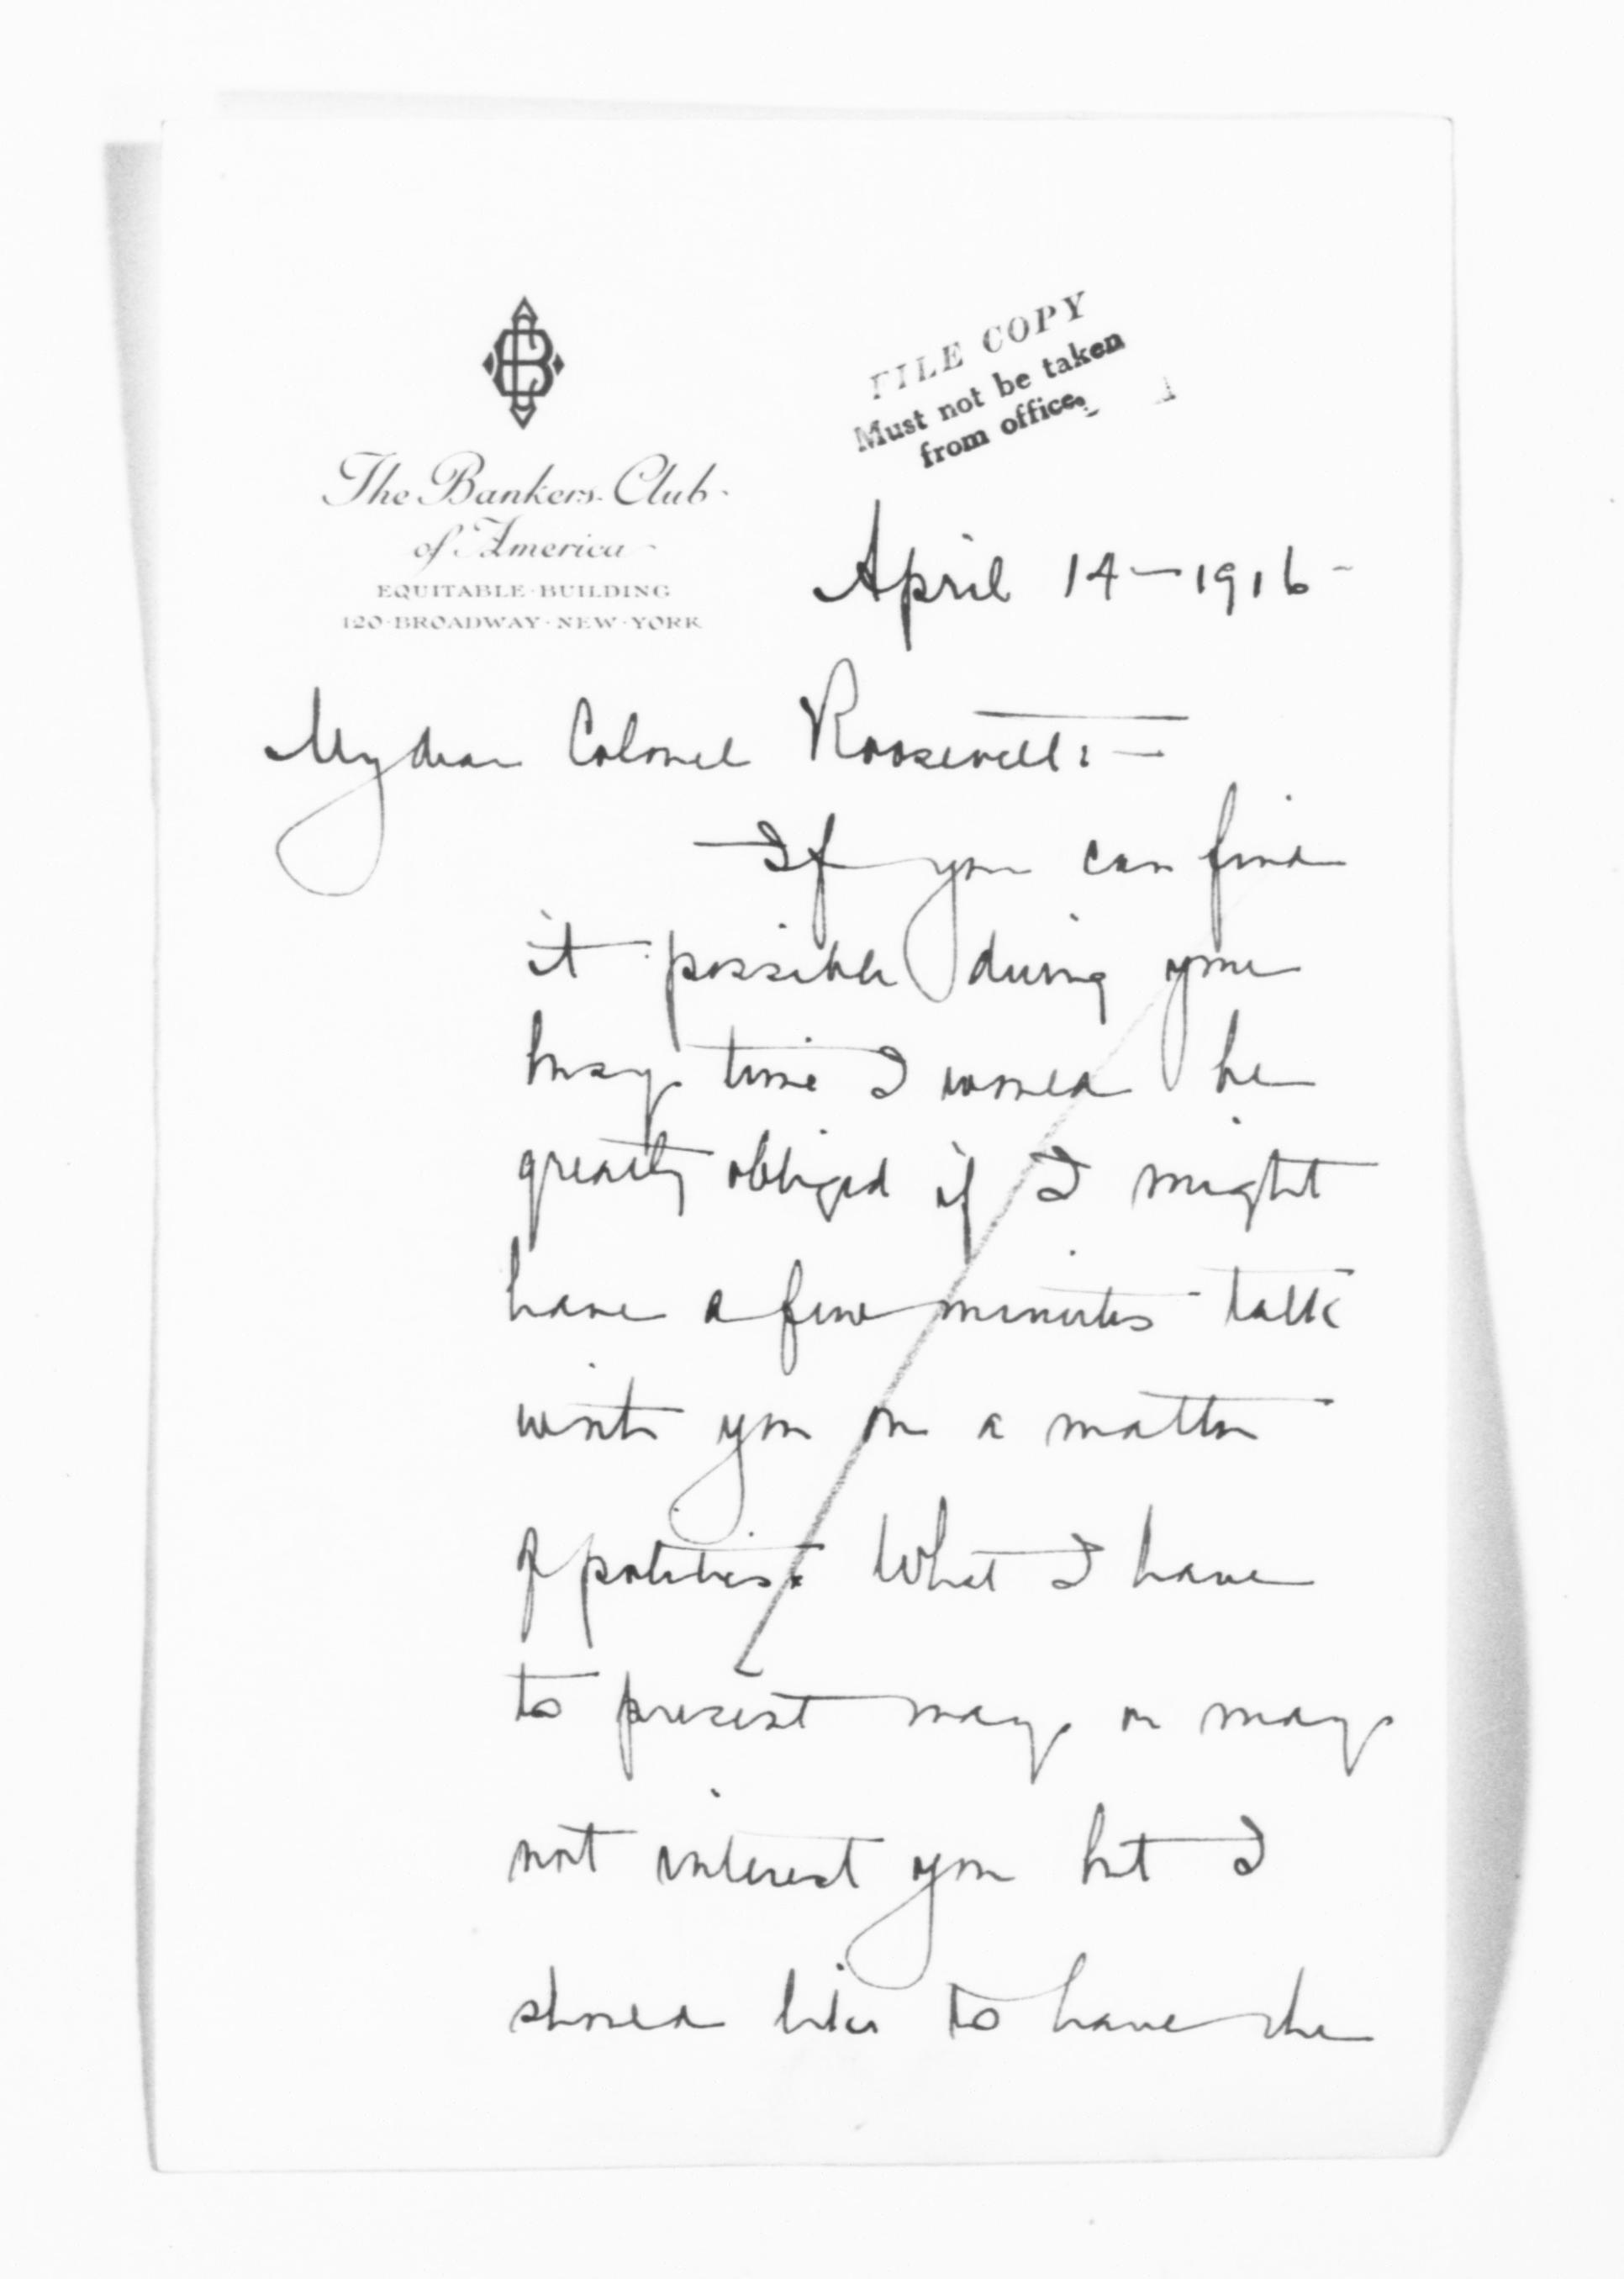 FILE COPY
Must not be taken
from office.
The Bankers Club
of America
EQUITABLE·BUILDING
120·BROADWAY·NEW·YORK
April 14—1916—
My dear Colonel Roosevelt:—
If you can find
it possible during your
busy time I would be
greatly obliged if I might
have a few minutes talk
with you on a matter
of politics. What I have
to present may or may
not interest you but I
should like to have the